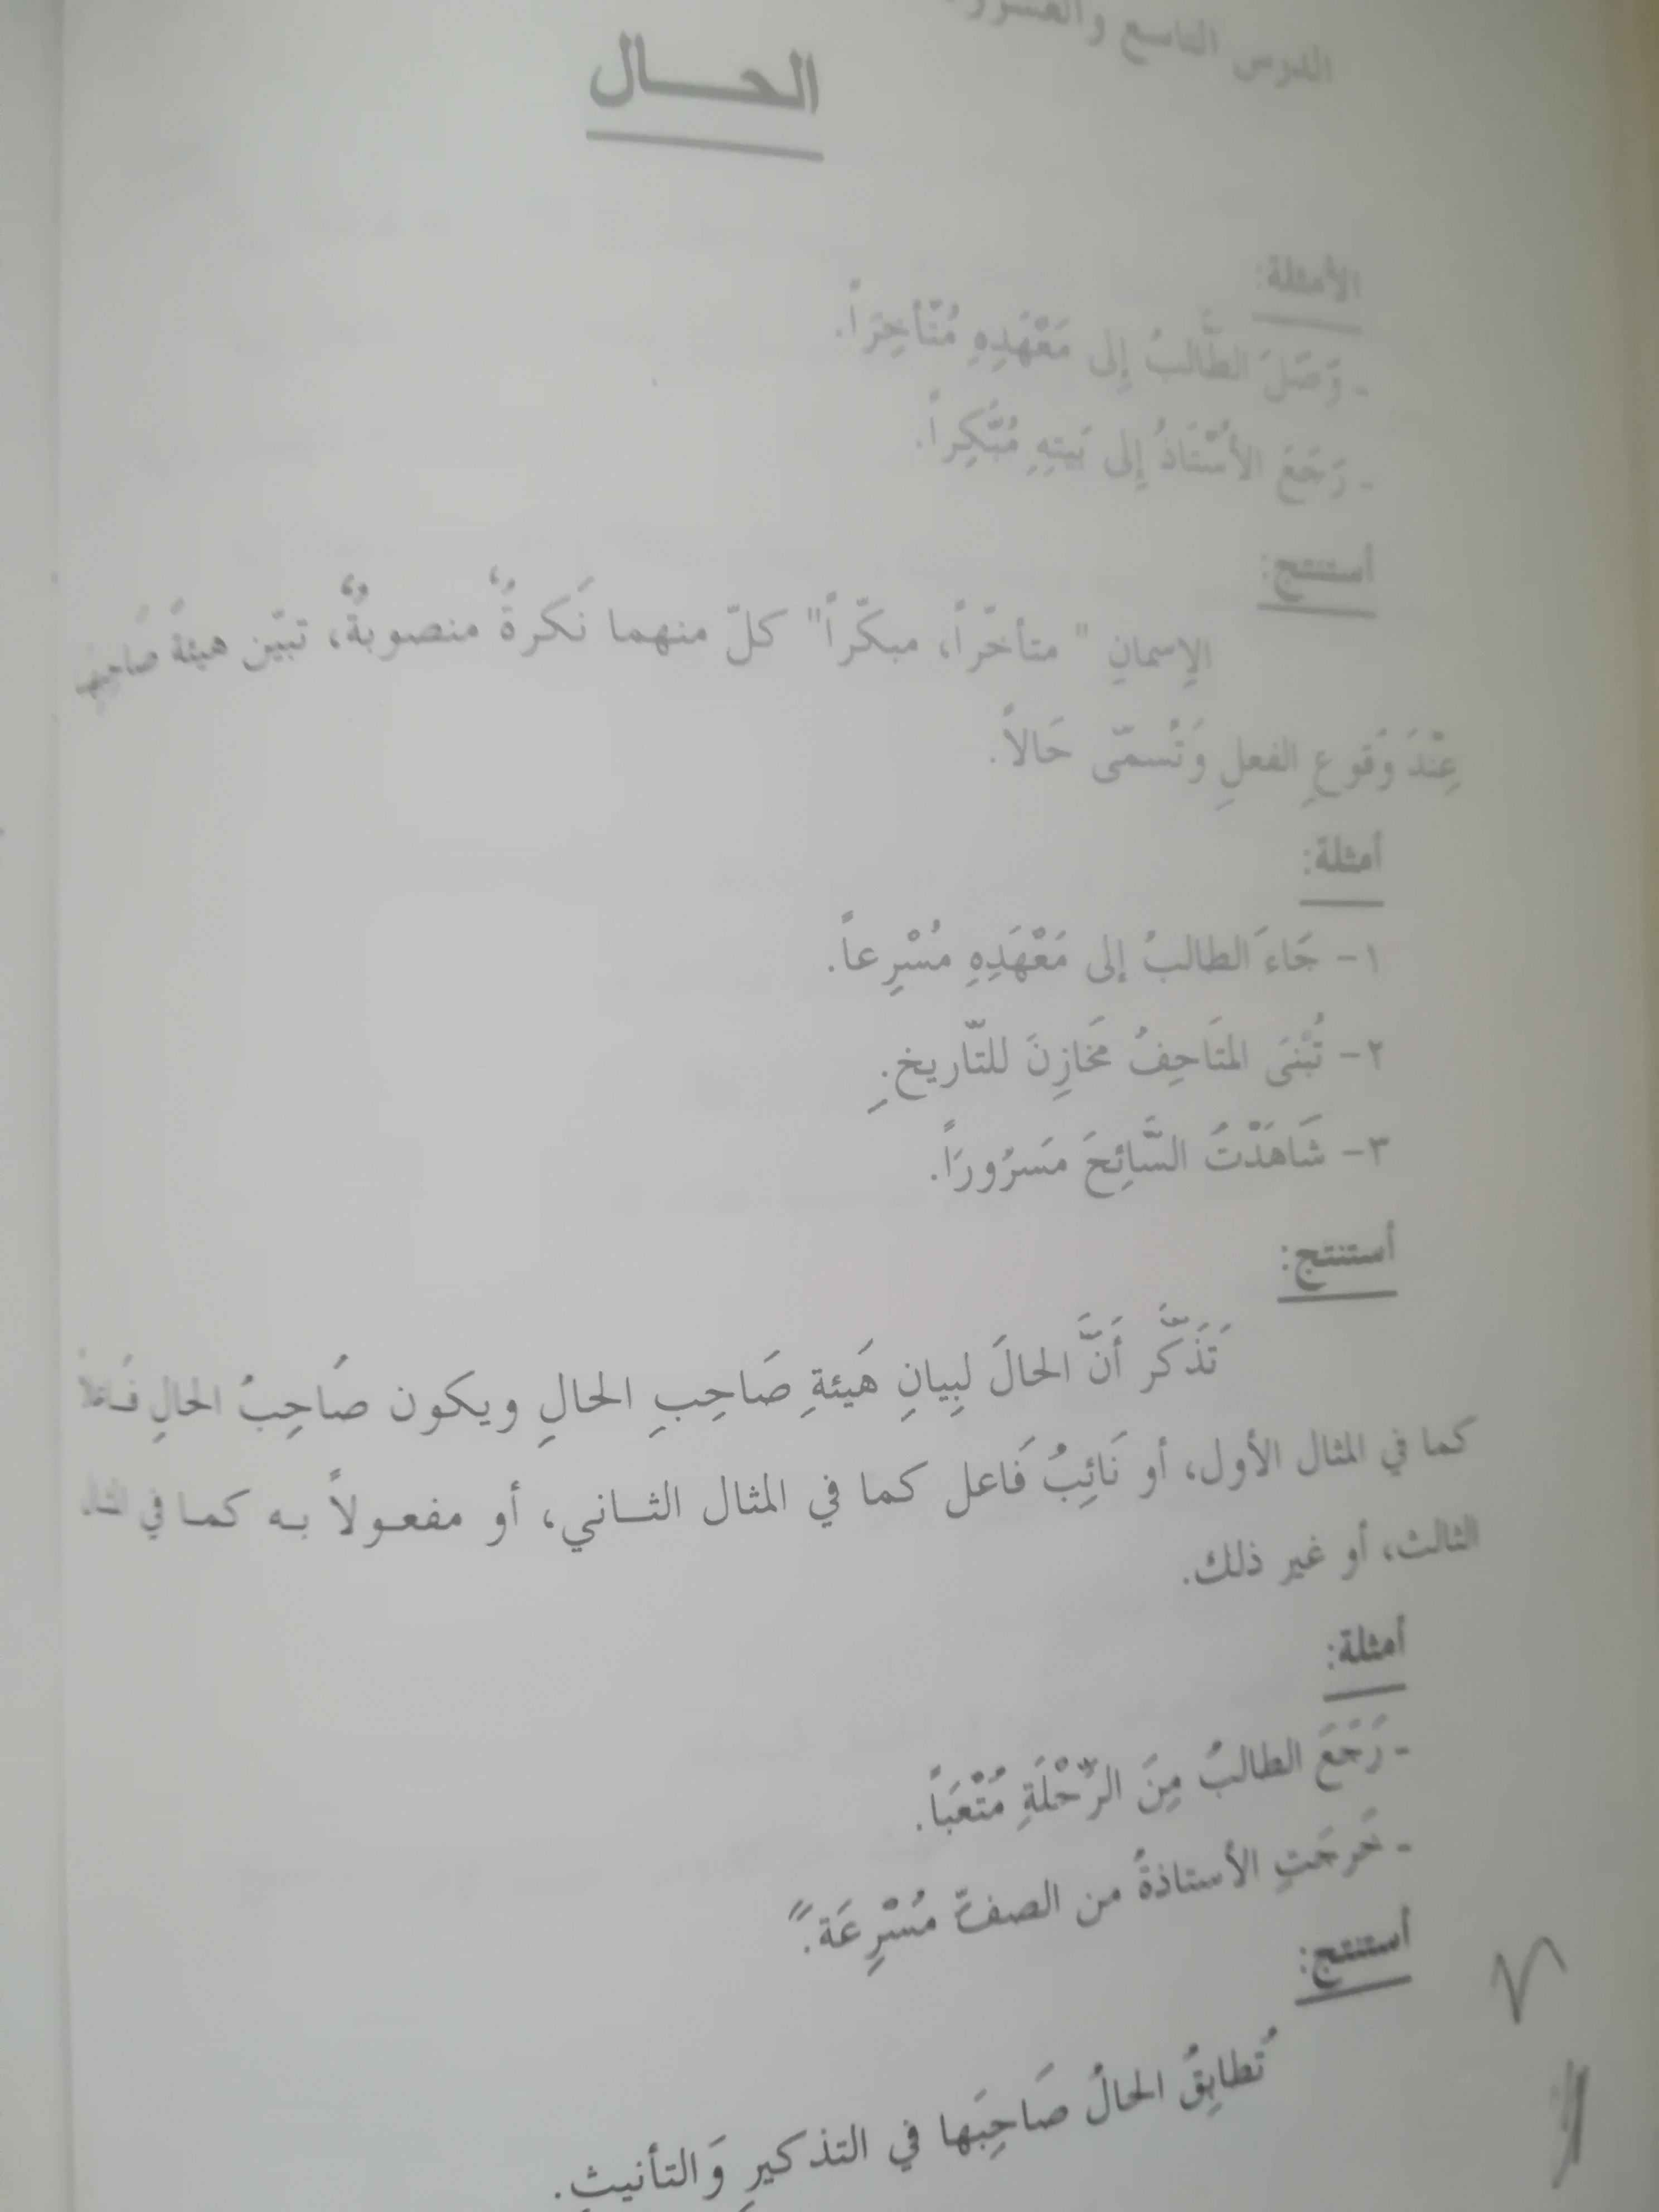 الدرس التاسع والعشرو
الحال
الأمثلة:
- وَصَلَ الطَّالبُ إِلى مَعْهَدِهِ مُتَأخِّرَاً.
- رَجَعَ الأُسْتَاذُ إِلى بَيتِهِ مُبَكِّراً.
أستنتج:
الإسمانِ " متأخّراً، مبكّراً" كلّ منهما نَكرةٌ منصوبةٌ، تبيّن هيئةَ صَاحِبِها
عِنْدَ وُقوعِ الفعلِ وَتُسمّى حَالاً.
أمثلة:
١- جَاءَ الطالبُ إلى مَعْهَدِهِ مُسْرِعاً.
٢- تُبْنَى المتَاحِفُ مَخازِنَ للتّاريخِ.
٣- شَاهَدْتُ السَّائِحَ مَسرُورَاً.
أستنتج:
تَذَكَّر أَنَّ الحالَ لبِيانِ هَيئةِ صَاحِبِ الحالِ ويكون صَاحِبُ الحالِ فَاعلاً
كما في المثال الأول، أو نَائِبُ فَاعل كما في المثال الثـاني، أو مفعـولاً بـه كمـا في
الثالث، أو غير ذلك.
أمثلة:
- رَجَعَ الطالبُ مِنَ الرِّحْلَةِ مُتْعَبَاً.
- خَرجَتِ الأستاذةُ من الصفّ مُسْرِعَةً.
أستنتج:
تُطابِقُ الحالُ صَاحِبَها في التذكيرِ وَالتأنيثِ.